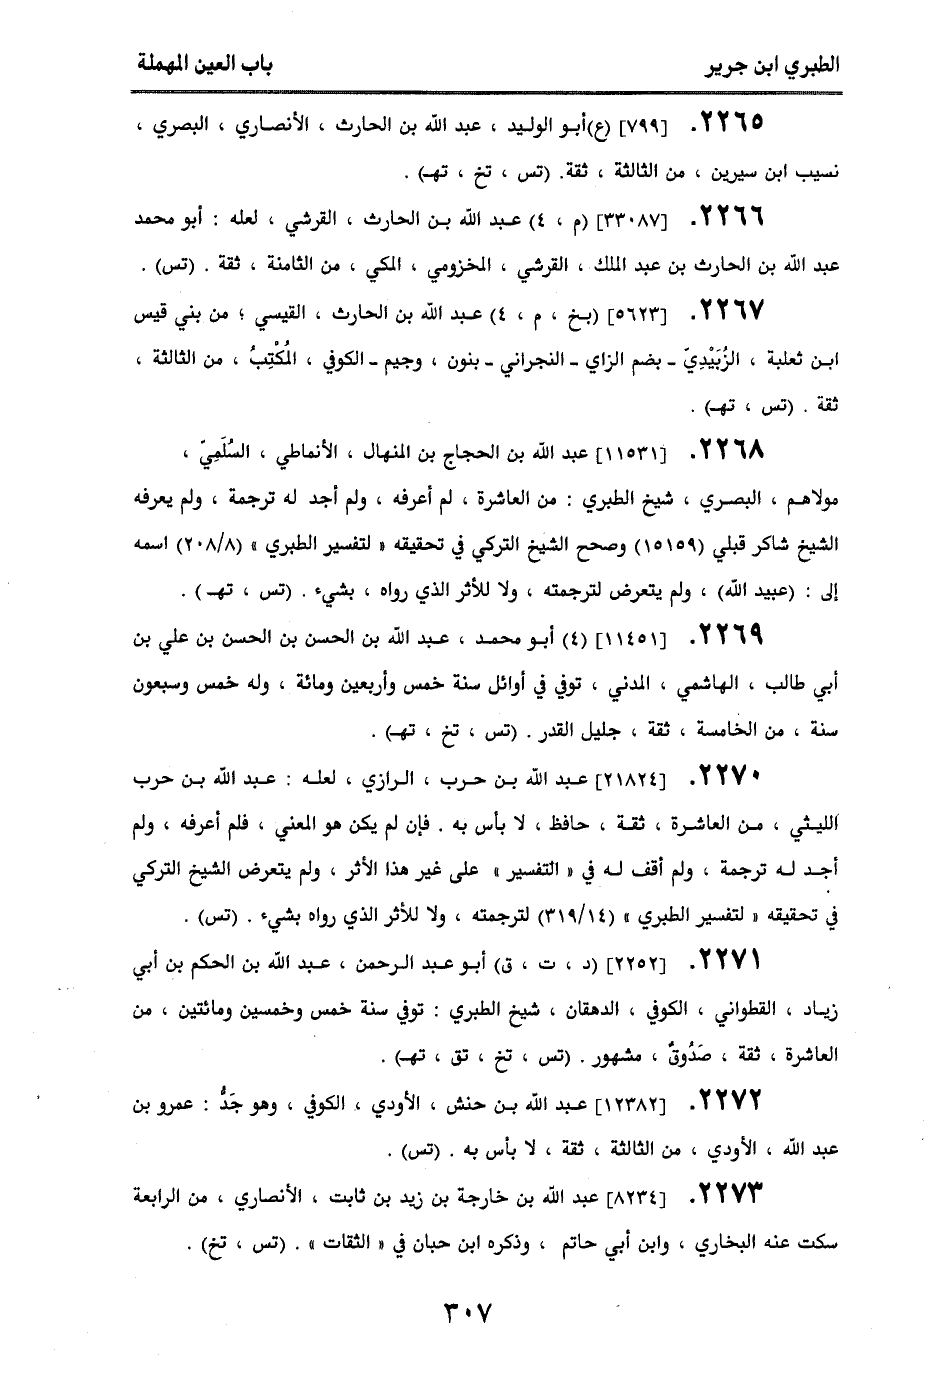 الطبري ابن جرير باب العين المهملة
٢٢٦٥. [٧٩٩] (ع) أبو الوليد ، عبد الله بن الحارث ، الأنصاري ، البصري ،
نسيب ابن سيرين ، من الثالثة ، ثقة. (تس ، تخ ، تهـ) .
٢٢٦٦. [٣٣٠٨٧] (م ، ٤) عبد الله بن الحارث ، القرشي ، لعله : أبو محمد
عبد الله بن الحارث بن عبد الملك ، القرشي ، المخزومي ، المكي ، من الثامنة ، ثقة . (تس) .
٢٢٦٧. [٥٦٢٣] (بخ ، م ، ٤) عبد الله بن الحارث ، القيسي ؛ من بني قيس
ابن ثعلبة ، الزُبَيْدِيّ ـ بضم الزاي ـ النجراني ـ بنون ، وجيم ـ الكوفي ، المُكْتِبُ ، من الثالثة ،
ثقة . (تس ، تهـ) .
٢٢٦٨. [١١٥٣١] عبد الله بن الحجاج بن المنهال ، الأنماطي ، السُلَمِيّ ،
مولاهم ، البصري ، شيخ الطبري : من العاشرة ، لم أعرفه ، ولم أجد له ترجمة ، ولم يعرفه
الشيخ شاكر قبلي (١٥١٥٩) وصحح الشيخ التركي في تحقيقه « لتفسير الطبري » (٢٠٨/٨) اسمه
إلى : (عبيد الله) ، ولم يتعرض لترجمته ، ولا للأثر الذي رواه ، بشيء . (تس ، تهـ) .
٢٢٦٩. [١١٤٥١] (٤) أبو محمد ، عبد الله بن الحسن بن الحسن بن علي بن
أبي طالب ، الهاشمي ، المدني ، توفي في أوائل سنة خمس وأربعين ومائة ، وله خمس وسبعون
سنة ، من الخامسة ، ثقة ، جليل القدر . (تس ، تخ ، تهـ) .
٢٢٧٠. [٢١٨٢٤] عبد الله بن حرب ، الرازي ، لعله : عبد الله بن حرب
الليثي ، من العاشرة ، ثقة ، حافظ ، لا بأس به . فإن لم يكن هو المعني ، فلم أعرفه ، ولم
أجد له ترجمة ، ولم أقف له في « التفسير » على غير هذا الأثر ، ولم يتعرض الشيخ التركي
في تحقيقه « لتفسير الطبري » (٣١٩/١٤) لترجمته ، ولا للأثر الذي رواه بشيء . (تس) .
٢٢٧١. [٢٢٥٢] (د ، ت ، ق) أبو عبد الرحمن ، عبد الله بن الحكم بن أبي
زياد ، القطواني ، الكوفي ، الدهقان ، شيخ الطبري : توفي سنة خمس وخمسين ومائتين ، من
العاشرة ، ثقة ، صَدُوقٌ ، مشهور . (تس ، تخ ، تق ، تهـ) .
٢٢٧٢. [١٢٣٨٢] عبد الله بن حنش ، الأودي ، الكوفي ، وهو جَدُّ : عمرو بن
عبد الله ، الأودي ، من الثالثة ، ثقة ، لا بأس به . (تس) .
٢٢٧٣. [٨٢٣٤] عبد الله بن خارجة بن زيد بن ثابت ، الأنصاري ، من الرابعة
سكت عنه البخاري ، وابن أبي حاتم ، وذكره ابن حبان في « الثقات » . (تس ، تخ) .
٣٠٧